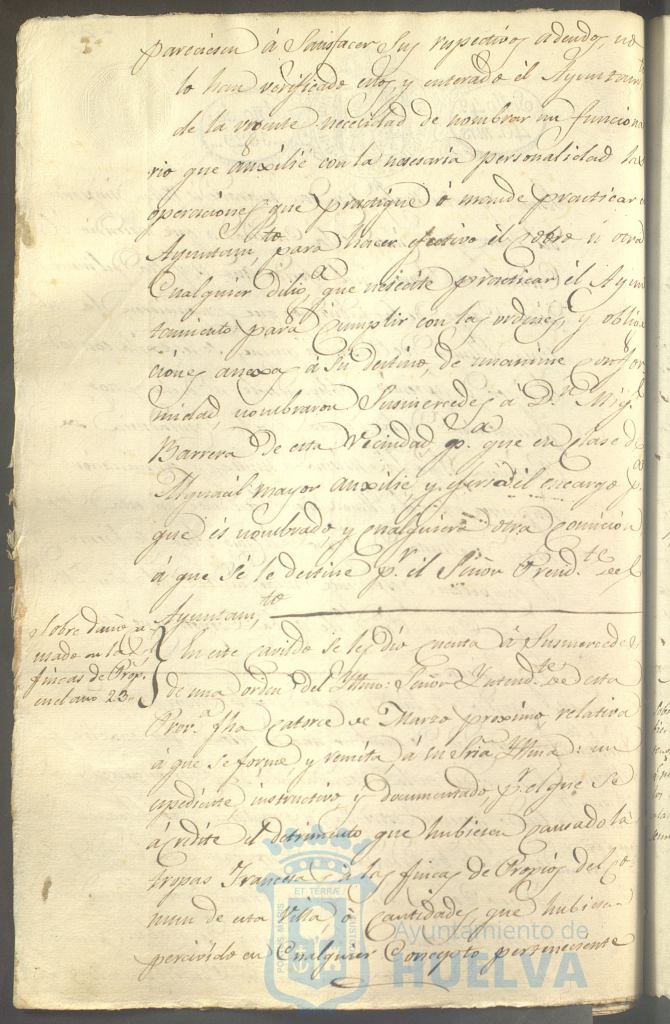 pareciesen á Satisfacer sus respectivos adeudos, no
lo han verificado estos, y enterado él Ayuntam.to
de la urgente necesidad de nombrar un funciona
rio que auxilie con la nesesaria personalidad las
operaciones que practique ó mande practicar el
Ayuntam.to, para hacer efectivo él cobro ú otra
Cualquier dilig.a que nesesite practicar él Ayun
tamiento para Cumplir con las ordenes, y obliga
ciones anexas á su destino, de unanime confor
midad, nombraron Susmercedes á D.n Mig.l
Barrera de esta Veciudad, p.a que en clase de
Alguacil mayor auxilie, y ejersa él encargo p.a
que és nombrado, y cualquiera otra comición
á que se le destine p.r él Señor Presid.te del
Ayuntam.to
Sobre daños ca
usados en las
fincas de Prop.s
en el año 23.
En este cavildo se les dió cuenta á Susmercedes
de una órden del Yltmo: Señor Yntend.te de esta
Prov.a fha catorce de Marzo proximo relativa
á que se forme, y remita á su Sria Yltma: un
espediente instructivo, y documentado p.r el que se
ácredite el detrimento que hubiesen causado las
tropas Francesas á las fincas de Propios del Co
mun de esta Villa, ó Cantidades que hubiesen
percivido en Cualquier Concepto perteneciente
PORTUS MARIS ET TERRÆ CUSTODIA
Ayuntamiento de
HUELVA